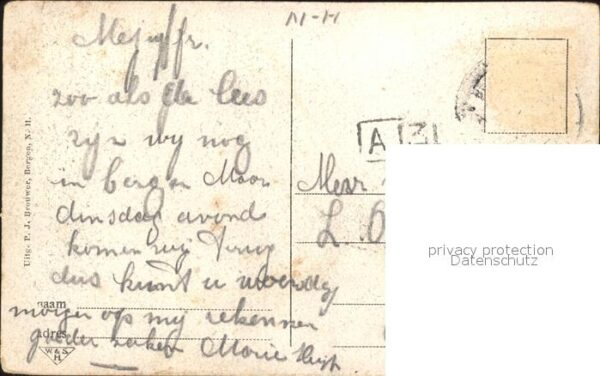 M-H
Mejuffr.
zoo als U lees
zijn wij nog
in bergen Maar
dinsdag avond
komen wij terug
dus kunt u woensdag
morgen op mij rekenen
goeder zaken Marie
Uitg. P. J. Brouwer, Bergen, N. H.
naam
adres
W&S
H
A 31
Mevr
L. O
privacy protection
Datenschutz